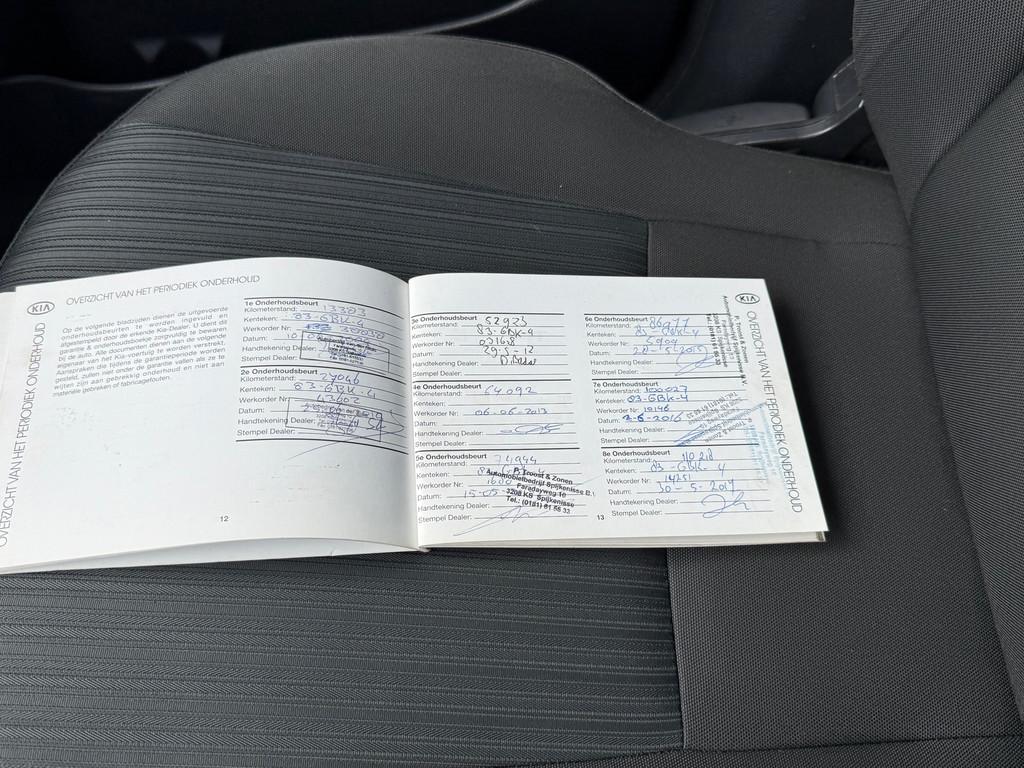 KIA
OVERZICHT VAN HET PERIODIEK ONDERHOUD
OVERZICHT VAN HET PERIODIEK ONDERHOUD
Op de volgende bladzijden dienen de uitgevoerde
onderhoudsbeurten te worden ingevuld en
afgestempeld door de erkende Kia-Dealer. U dient dit
garantie & onderhoudsboekje zorgvuldig te bewaren
bij de auto. Alle documenten dienen aan de volgende
eigenaar van het Kia-voertuig te worden verstrekt.
Aanspraken die tijdens de garantieperiode worden
gesteld, zullen niet onder de garantie vallen als ze te
wijten zijn aan gebrekkig onderhoud en niet aan
materiële gebreken of fabricagefouten.
1e Onderhoudsbeurt
Kilometerstand: 13303
Kenteken: 83-GBK-4
Werkorder Nr:
Datum:
Handtekening Dealer:
Stempel Dealer:
2e Onderhoudsbeurt
Kilometerstand: 27046
Kenteken: 83-GBK-4
Werkorder Nr: 43602
Datum:
Handtekening Dealer:
Stempel Dealer:
12
3e Onderhoudsbeurt
Kilometerstand: 52923
Kenteken: 83-GBK-4
Werkorder Nr: 021628
Datum: 29-5-12
Handtekening Dealer:
Stempel Dealer:
4e Onderhoudsbeurt
Kilometerstand: 64092
Kenteken:
Werkorder Nr:
06-06-2013
Datum:
Handtekening Dealer:
Stempel Dealer:
5e Onderhoudsbeurt
Kilometerstand: 74944
Kenteken:
Werkorder Nr:
Datum: 15-05
Handtekening Dealer:
Stempel Dealer:
P. Troost & Zonen
Automobielbedrijf Spijkenisse B.V.
Faradayweg 10
3208 KS Spijkenisse
Tel.: (0181) 61 56 33
13
6e Onderhoudsbeurt
Kilometerstand: 86977
Kenteken: 83-GBK-4
Werkorder Nr: 5909
Datum: 20-5-2015
Handtekening Dealer:
Stempel Dealer:
7e Onderhoudsbeurt
Kilometerstand: 100027
Kenteken: 83-GBK-4
Werkorder Nr: 10146
Datum: 2-6-2016
Handtekening Dealer:
Stempel Dealer:
8e Onderhoudsbeurt
Kilometerstand:
Kenteken: 83-GBK-4
Werkorder Nr: 14251
Datum: 30-5-2017
Handtekening Dealer:
Stempel Dealer:
KIA
OVERZICHT VAN HET PERIODIEK ONDERHOUD